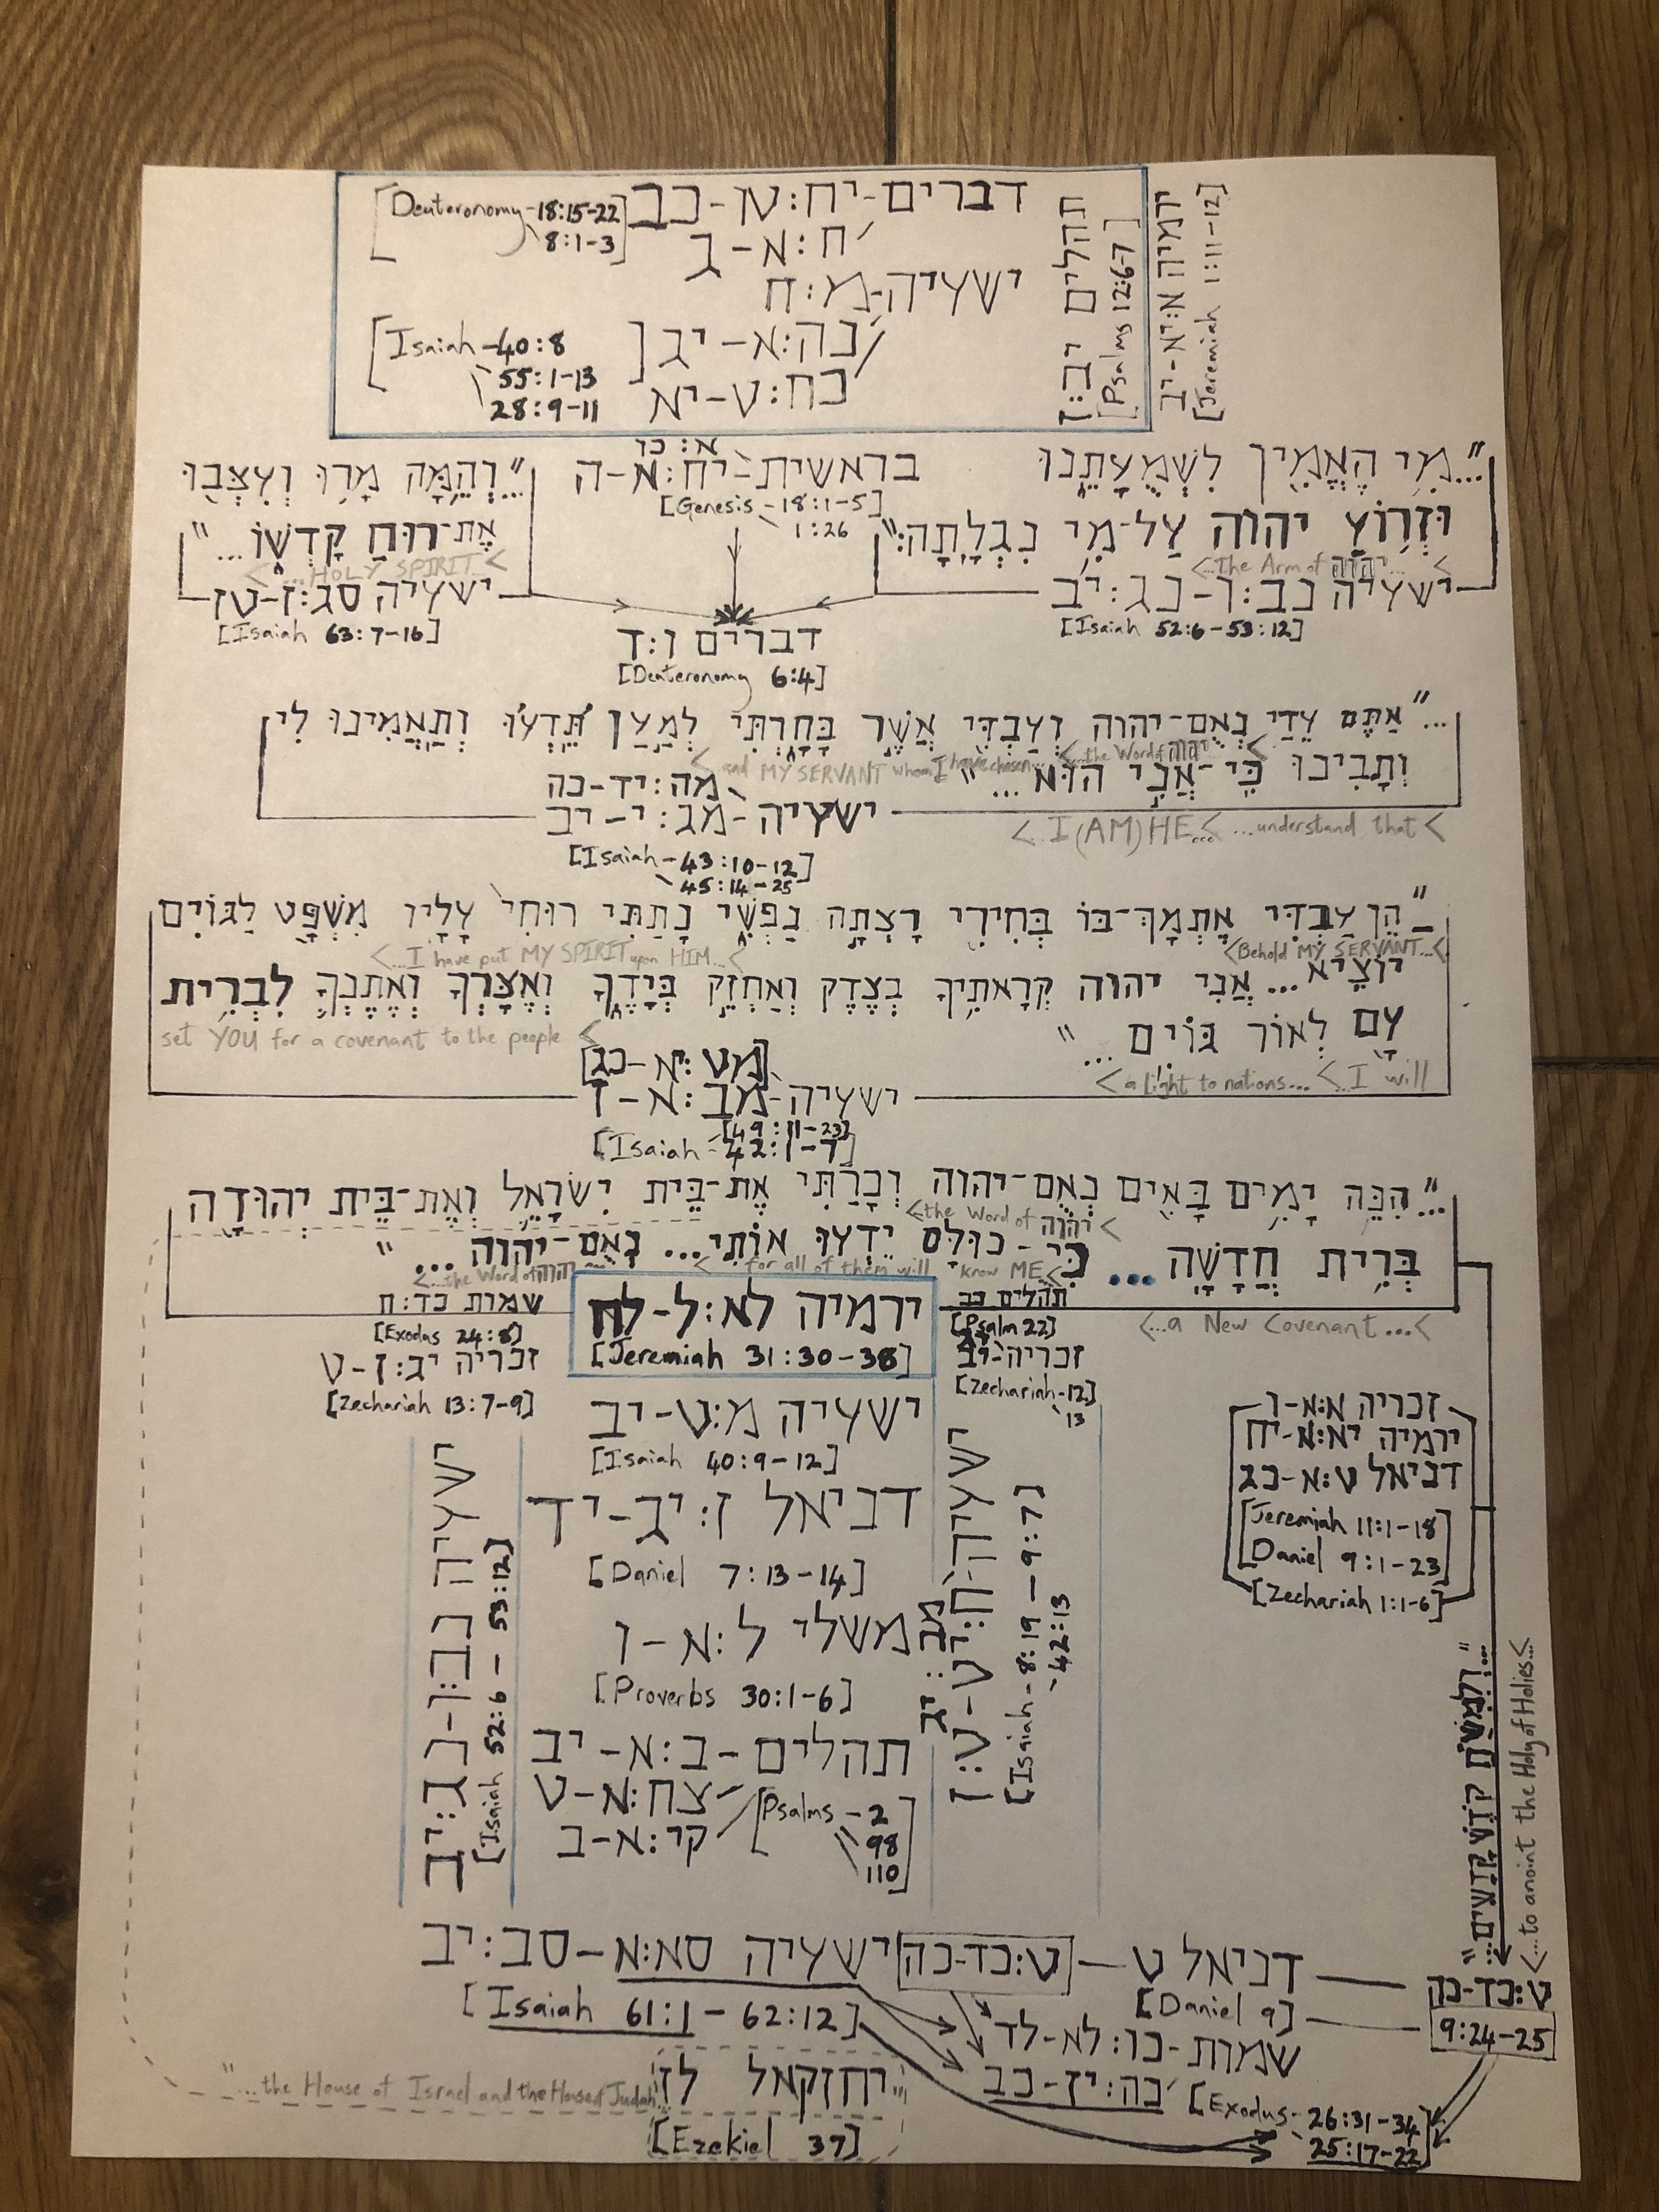 דברים-יח:טו-כב
[Deuteronomy-18:15-22
ח:א-ג
8:1-3]
ישעיה-מ:ח
נה:א-יג
[Isaiah-40:8
55:1-13
כח:ט-יא
28:9-11]
תהלים יב:ז
[Psalms 12:6-7]
ירמיה א:יא-יב
[Jeremiah 1:11-12]
"...מִ֥י הֶאֱמִ֖ין לִשְׁמֻעָתֵ֑נוּ
וּזְר֥וֹעַ יהוה עַל-מִ֥י נִגְלָֽתָה׃"
<...the Arm of יהוה...<
ישעיה נב:ו-נג:יב
[Isaiah 52:6-53:12]
א:כו
בראשית-יח:א-ה
[Genesis-18:1-5]
1:26
"...וְהֵ֛מָּה מָר֥וּ וְעִצְּב֖וּ
אֶת-ר֣וּחַ קָדְשׁ֑וֹ..."
<...HOLY SPIRIT...<
ישעיה סג:ז-טז
[Isaiah 63:7-16]
דברים ו:ד
[Deuteronomy 6:4]
"...אַתֶּ֤ם עֵדַי֙ נְאֻם־יהוה וְעַבְדִּ֖י אֲשֶׁ֣ר בָּחָ֑רְתִּי לְמַ֣עַן תֵּ֠דְעוּ וְתַאֲמִ֨ינוּ לִ֤י
<and MY SERVANT whom I have chosen...<...the Word of יהוה<
וְתָבִ֙ינוּ֙ כִּֽי־אֲנִ֣י ה֔וּא..."
מה:יד-כה
ישעיה-מג:י-יב
<...I (AM) HE...<...understand that<
[Isaiah-43:10-12]
45:14-25
"הֵ֤ן עַבְדִּי֙ אֶתְמָךְ־בּ֔וֹ בְּחִירִ֖י רָצְתָ֣ה נַפְשִׁ֑י נָתַ֤תִּי רוּחִי֙ עָלָ֔יו מִשְׁפָּ֖ט לַגּוֹיִ֥ם
<...I have put MY SPIRIT upon HIM...<
<Behold MY SERVANT...<
יוֹצִֽיא... אֲנִ֧י יהוה קְרָאתִ֥יךָ בְצֶ֖דֶק וְאַחְזֵ֣ק בְּיָדֶ֑ךָ וְאֶצָּרְךָ֗ וְאֶתֶּנְךָ֛ לִבְרִ֥ית
set YOU for a covenant to the people<
עָ֖ם לְא֥וֹר גּוֹיִֽם..."
<a light to nations...<...I will
[מט:יא-כג]
ישעיה-מב:א-ז
[49:11-23]
[Isaiah-42:1-7]
"...הִנֵּ֛ה יָמִ֥ים בָּאִ֖ים נְאֻם־יהוה וְכָרַתִּ֗י אֶת־בֵּ֧ית יִשְׂרָאֵ֛ל וְאֶת־בֵּ֥ית יְהוּדָ֖ה
<the Word of יהוה<
בְּרִ֥ית חֲדָשָֽׁה... כִּֽי-כוּלָּם֩ יֵדְע֨וּ אוֹתִ֜י... נְאֻם־יהוה..."
<...the Word of יהוה...<...for all of them will know ME<
<...a New Covenant...<
ירמיה לא:ל-לח
[Jeremiah 31:30-38]
שמות כד:ח
[Exodus 24:8]
זכריה יג:ז-ט
[Zechariah 13:7-9]
תהלים כב
[Psalm 22]
זכריה-יב
[Zechariah-12]
13
ישעיה מ:ט-יב
[Isaiah 40:9-12]
דניאל ז:יג-יד
[Daniel 7:13-14]
משלי ל:א-ו
[Proverbs 30:1-6]
תהלים-ב:א-יב
צח:א-ט
קי:א-ב
[Psalms-2
98
110]
ישעיה נב:ו-נג:יב
[Isaiah 52:6-53:12]
ישעיה-ח:יט-ט:ז
מב:יג
[Isaiah-8:19-9:7]
-42:13
זכריה א:א-ו
ירמיה יא:א-יח
דניאל ט:א-כג
[Jeremiah 11:1-18]
[Daniel 9:1-23]
[Zechariah 1:1-6]
"...וְלִמְשֹׁ֖חַ קֹ֥דֶשׁ קָֽדָשִֽׁים..."
<...to anoint the Holy of Holies...<
ט:כד-כה
9:24-25
דניאל ט-ט:כד-כה
[Daniel 9]
ישעיה סא:א-סב:יב
[Isaiah 61:1-62:12]
שמות-כו:לא-לד
כה:יז-כב
[Exodus-26:31-34
25:17-22]
"יחזקאל לז
"...the House of Israel and the House of Judah..."
[Ezekiel 37]